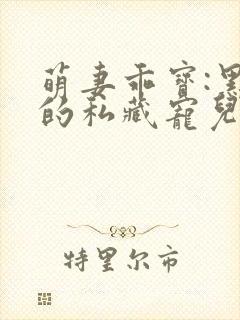 萌妻乖寶:
的私藏寵兒
特里尔市